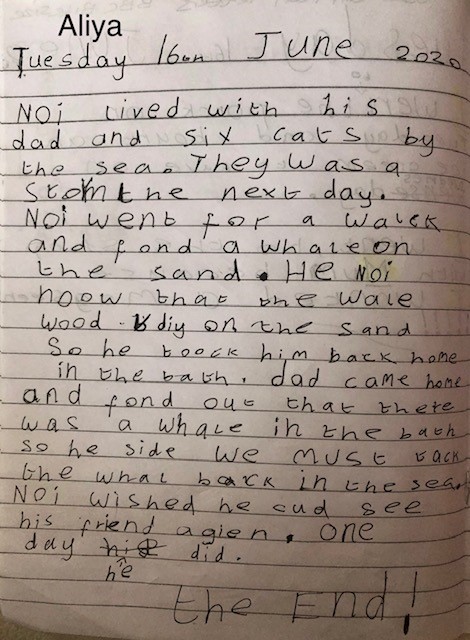 Aliya
Tuesday 16un June 2020
Noi lived with his
dad and six cats by
the sea. They was a
storm the next day.
Noi went for a walck
and fond a whale on
the sand. He Noi
noow that the wale
wood diy on the sand
So he toock him back home
in the bath. dad came home
and fond out that there
was a whale in the bath
so he side we must tack
the whal back in the sea.
Noi wished he cud see
his friend agien. one
day he did.
the End!